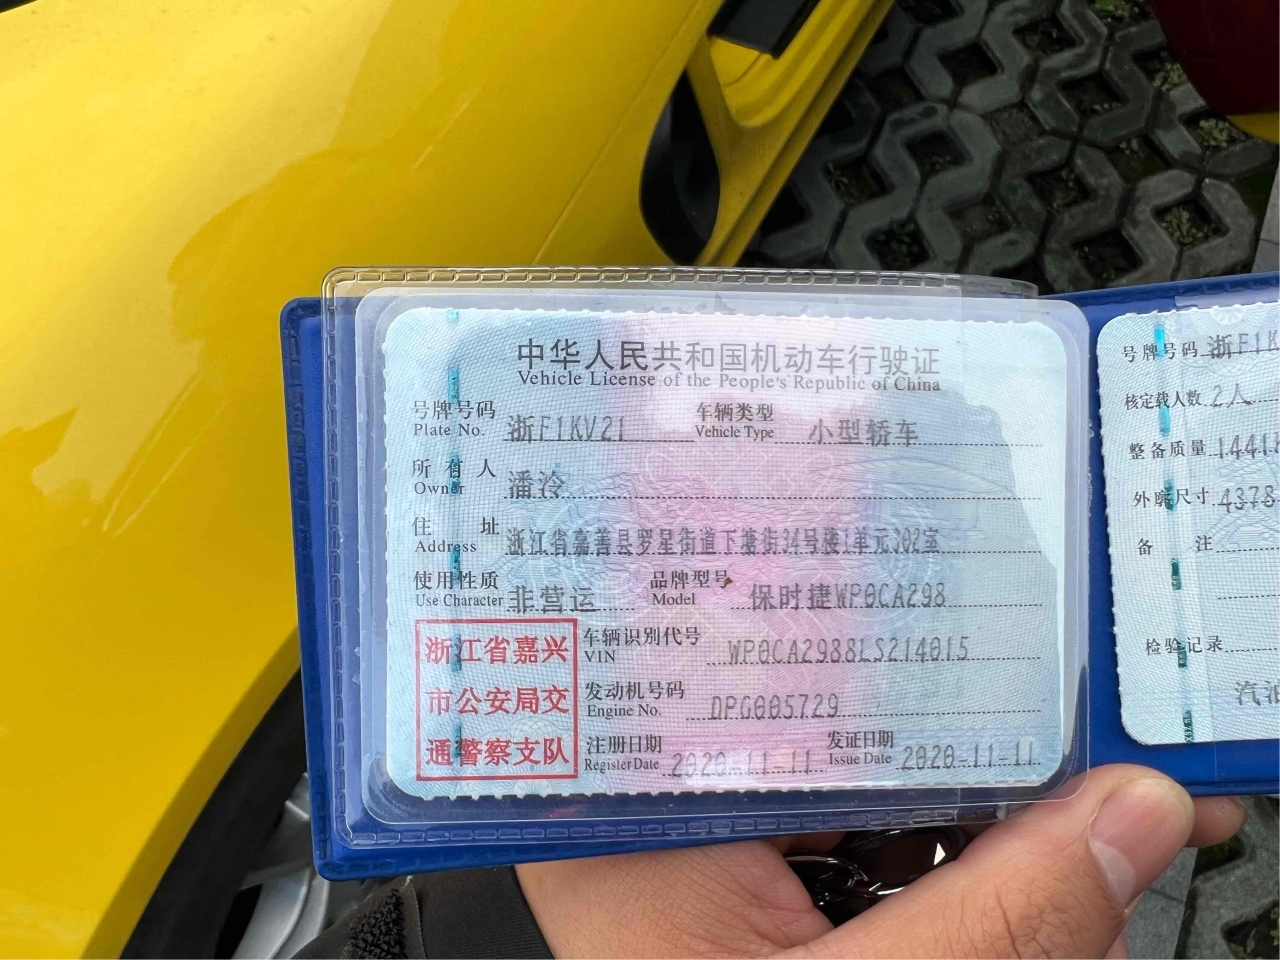 中华人民共和国机动车行驶证
Vehicle License of the People's Republic of China
号牌号码 浙F1KV21 车辆类型 小型轿车
Plate No. Vehicle Type
所有人 潘泠
Owner
住址 浙江省嘉善县罗星街道下塘街34号楼1单元302室
Address
使用性质 非营运 品牌型号 保时捷WP0CA298
Use Character Model
浙江省嘉兴
市公安局交
通警察支队
车辆识别代号 WP0CA2988LS214015
VIN
发动机号码 DPG005729
Engine No.
注册日期 2020-11-11 发证日期 2020-11-11
Register Date Issue Date
号牌号码 浙F1K
核定载人数 2人
整备质量 1441
外廓尺寸 4378
备注
检验记录